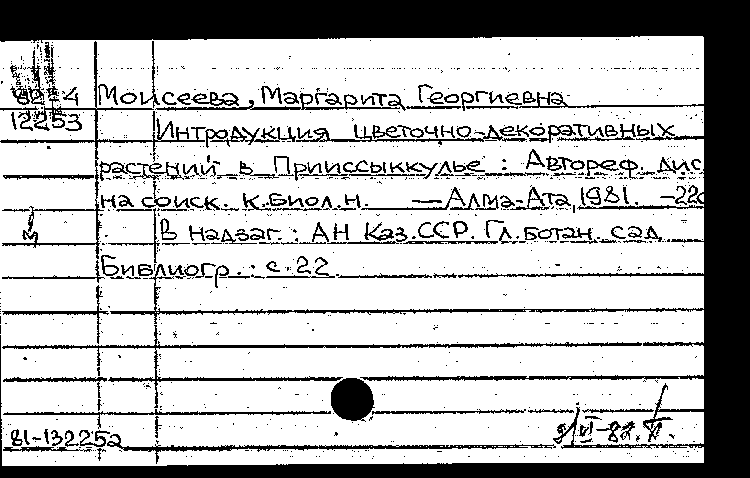 82-4 Моисеева, Маргарита Георгиевна
12253 Интродукция цветочно-декоративных
растений в Прииссыккулье : Автореф. дис
на соиск. к.биол.н. — Алма-Ата, 1981. - 22с
В надзаг.: АН Каз.ССР. Гл. ботан. сад
Библиогр.: с. 22
81-132252